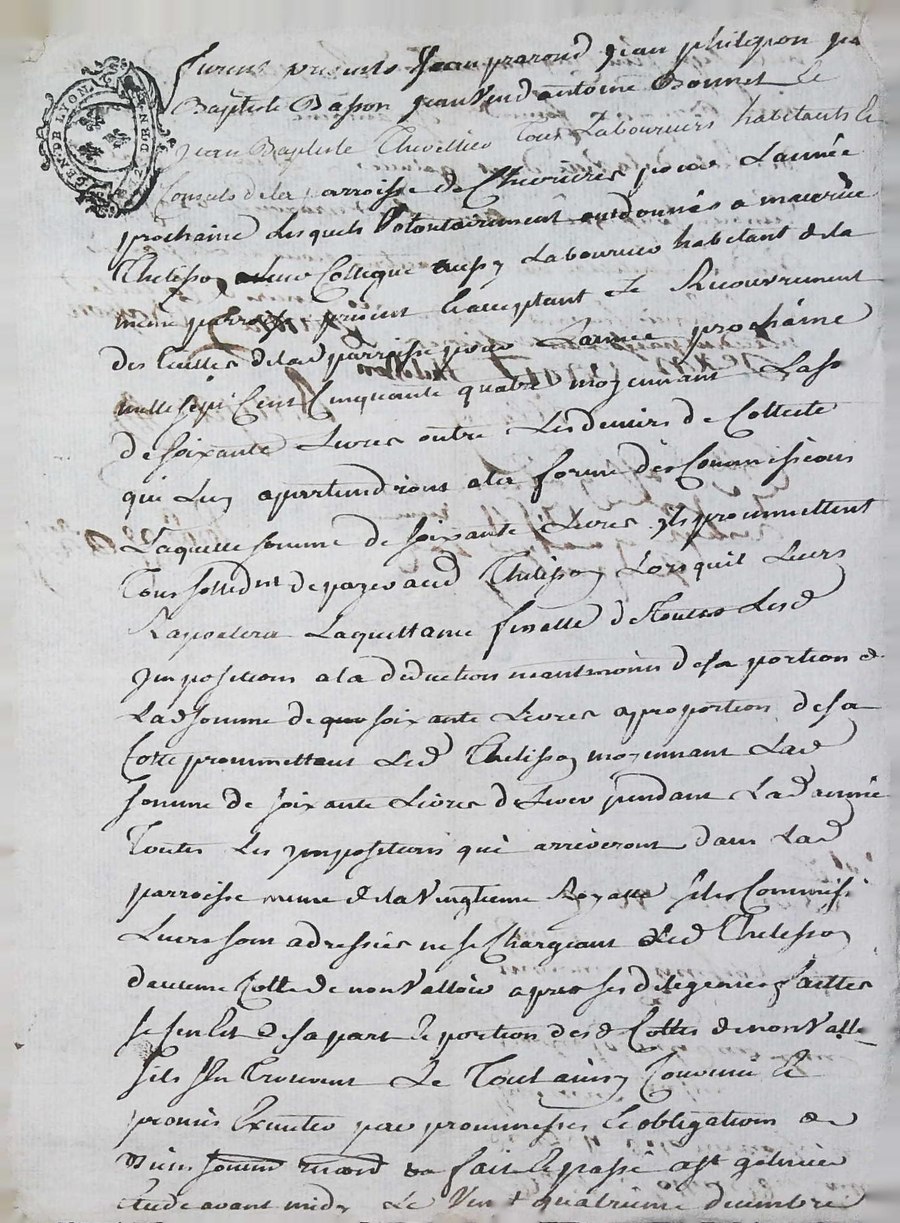 GEN DE LYON
Furent presents Jean prarond Jean philipon
Baptiste Basson Jean antoine Bonnet Et
Jean Baptiste Thevellier Tous Laboureurs habitants Et
Consuls de la parroisse de Chevrieres pour Lannée
prochaine Lesquels Volontairement ont donnés a
Thelisson Leur Collegue aussy Laboureur habitant de la
meme parroisse present Et acceptant Le Recouvrement
des de lad parroisse pour Lannée prochaine
mille sept Cent Cinquante quatre moyennant La
de soixante Livres outre Les deniers de Collecte
qui Luy apartiendront a la forme des Commissions
Laquelle somme de soixante Livres ils prommettent
Tous de payer aud Thelisson Lorsquil Leurs
Raportera Laquittance finalle de Touttes Lesd
Impositions a la deduction neantmoins de sa portion de
Lad somme de soixante Livres a proportion de sa
Cotte prommettant Led Thelisson moyennant Lad
somme de soixante Livres de Lever pendant Lad année
Toutes Les Impositions qui arriveront dans Lad
parroisse meme de la Vingtieme Royalle si les Commissi
Leurs sont adressées ne se Chargeant Led Thelisson
daucune Cotte de non Valloir apres ses diligences faittes
de sa part Et portion desd Cottes de non Vall
sils sen Trouvent Le Tout ainsy Convenu Et
promis Executer par prommesses Et obligations de
Biens fait Et passé a St galmier
Etude avant midy Le Vingt quatrieme decembre